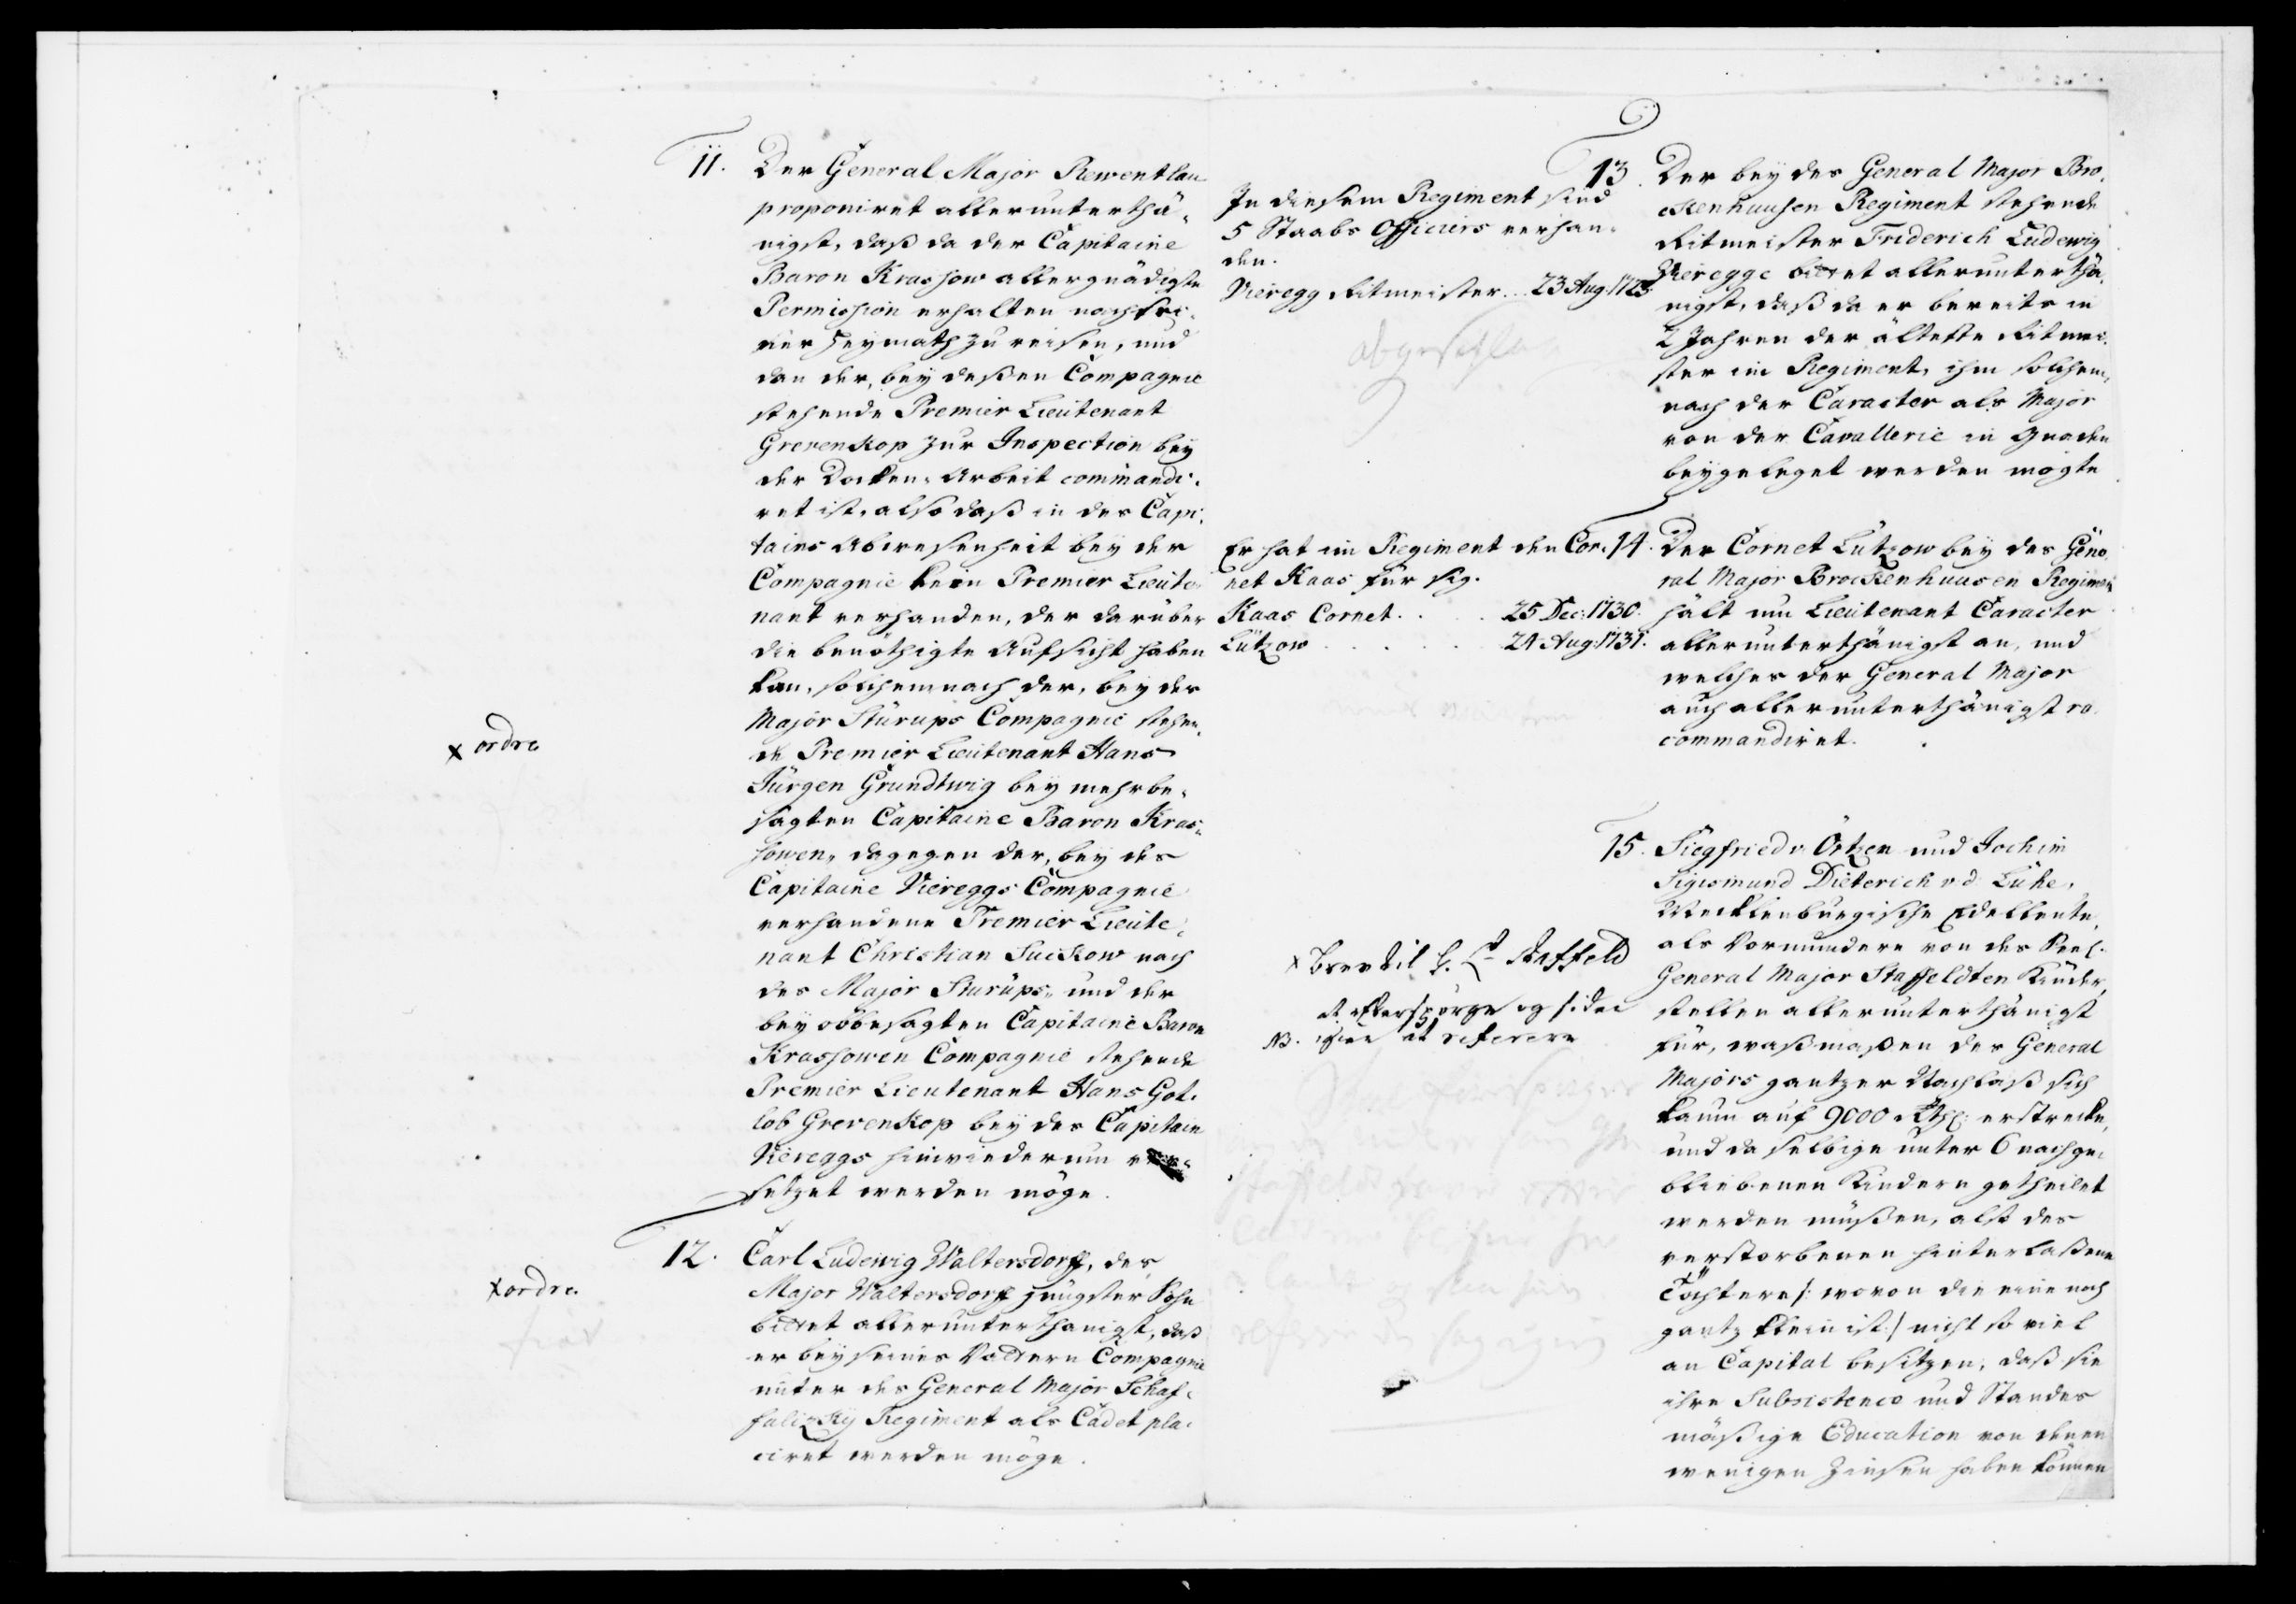 11. Der General Major Rewentlau
proponiret allerunterthä-
nigst, daß da der Capitaine
Baron Krassow allergnädigste
Permission erhalten nach sei-
ner Heymath zu reisen, und
dan der, bey deßen Compagnie
stehende Premier Lieutenant
Grevenkop zur Inspection bey
der Docken-Arbeit commandi-
ret ist, also daß in des Capi-
tains Abwesenheit bey der
Compagnie kein Premier Lieute-
nant verhanden, der darüber
die benöthigte Aufsicht haben
kan, solchemnach der, bey des
Major Stürups Compagnie stehen-
de Premier Lieutenant Hans
Jürgen Grundtwig bey mehrbe-
sagten Capitaine Baron Kras-
sowen, dagegen der, bey des
Capitaine Viereggs Compagnie
verhandene Premier Lieute-
nant Christian Suckow nach
des Major Stürups, und der
bey obbesagten Capitaine Baron
Krassowen Compagnie stehende
Premier Lieutenant Hans Got-
lob Grevenkop bey des Capitain
Viereggs hinwiederum ver-
setzet werden möge.
x ordre
12. Carl Ludewig Waltersdorff, des
Major Waltersdorff jüngster Sohn
bittet allerunterthänigst, daß
er bey seines Vattern Compagnie
unter des General Major Schaf-
falizky Regiment als Cadet pla-
ciret werden möge.
x ordre
13. Der bey des General Major Bro-
ckenhuusen Regiment stehende
Ritmeister Friderich Ludewig
Vieregge bittet allerunterthä-
nigst, daß da er bereits in
2 Jahren der älteste Ritmei-
ster im Regiment, ihm solchem-
nach der Caracter als Major
von der Cavallerie in Gnaden
beygeleget werden mögte
In diesem Regiment sind
5 Staabs Officiers verhan-
den.
Vieregg Ritmeister.. 23 Aug 1723
abgeschla
14. Der Cornet Lützow bey des Gene-
ral Major Brockenhuusen Regiment
hält um Lieutenant Caracter
allerunterthänigst an, und
welches der General Major
auch allerunterthänigst re-
commandiret.
Er hat im Regiment den Cor-
net Kaas für sich.
Kaas Cornet.... 25 Dec: 1730.
Lützow...... 24 Aug: 1731.
15. Siegfried v. Örtzen und Jochim
Sigismund Dieterich v. d. Lühe,
Mecklenburgische Edelleute,
als Vormundere von des Seel.
General Major Staffeldten Kinder,
stellen allerunterthänigst
für, waßmaßen des General
Majors gantzer Nachlaß sich
kaum auf 9000 Rthl: erstrecke,
und da selbige unter 6 nachge-
bliebenen Kindern getheilet
werden müßen, alß des
verstorbenen hinterlaßene
Töchtere /: wovon die eine noch
gantz klein ist :/ nicht so viel
an Capital besitzen, daß sie
ihre Subsistence und Standes
mäßige Education von denen
wenigen Zinsen haben können
x brev til G. L. Staffeld
at efterspörge og siden
NB. igien at referere